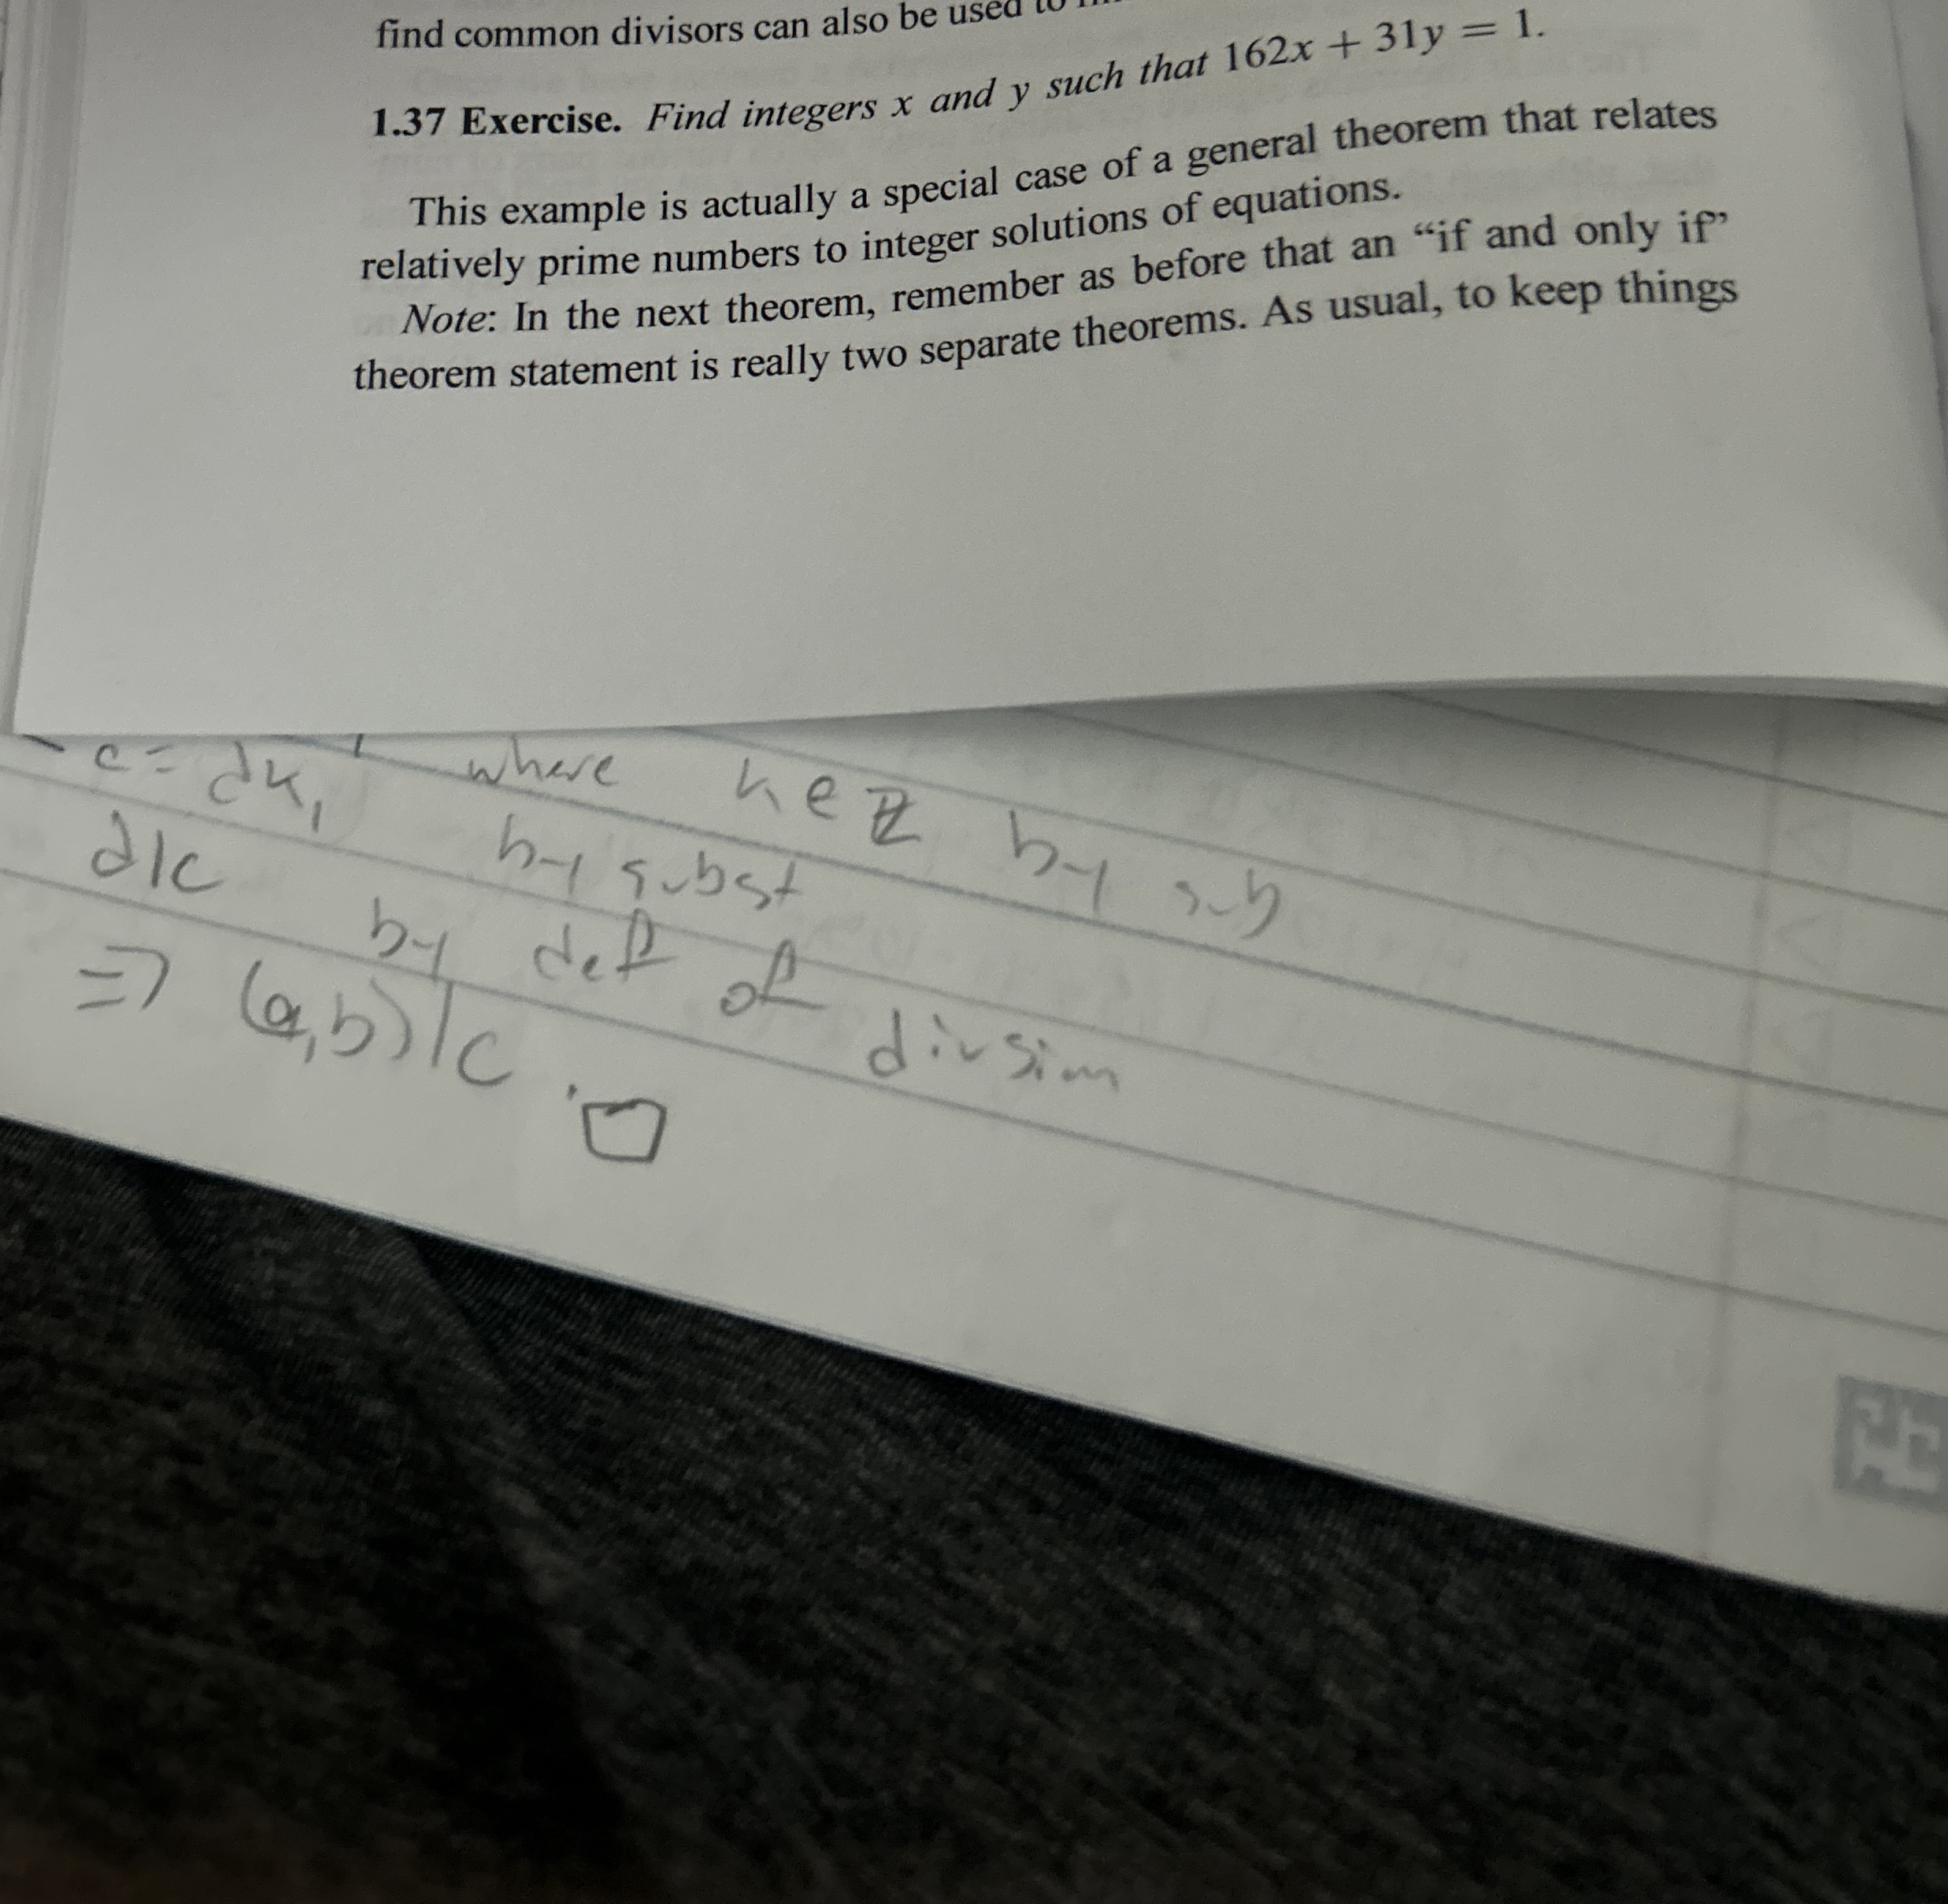 find common divisors can also be used to
1.37 Exercise. Find integers x and y such that 162x + 31y = 1.
This example is actually a special case of a general theorem that relates
relatively prime numbers to integer solutions of equations.
Note: In the next theorem, remember as before that an “if and only if”
theorem statement is really two separate theorems. As usual, to keep things
c = dk, where k ∈ ℤ by sub
d|c by subst
by def of divsion
⇒ (a,b)|c. □